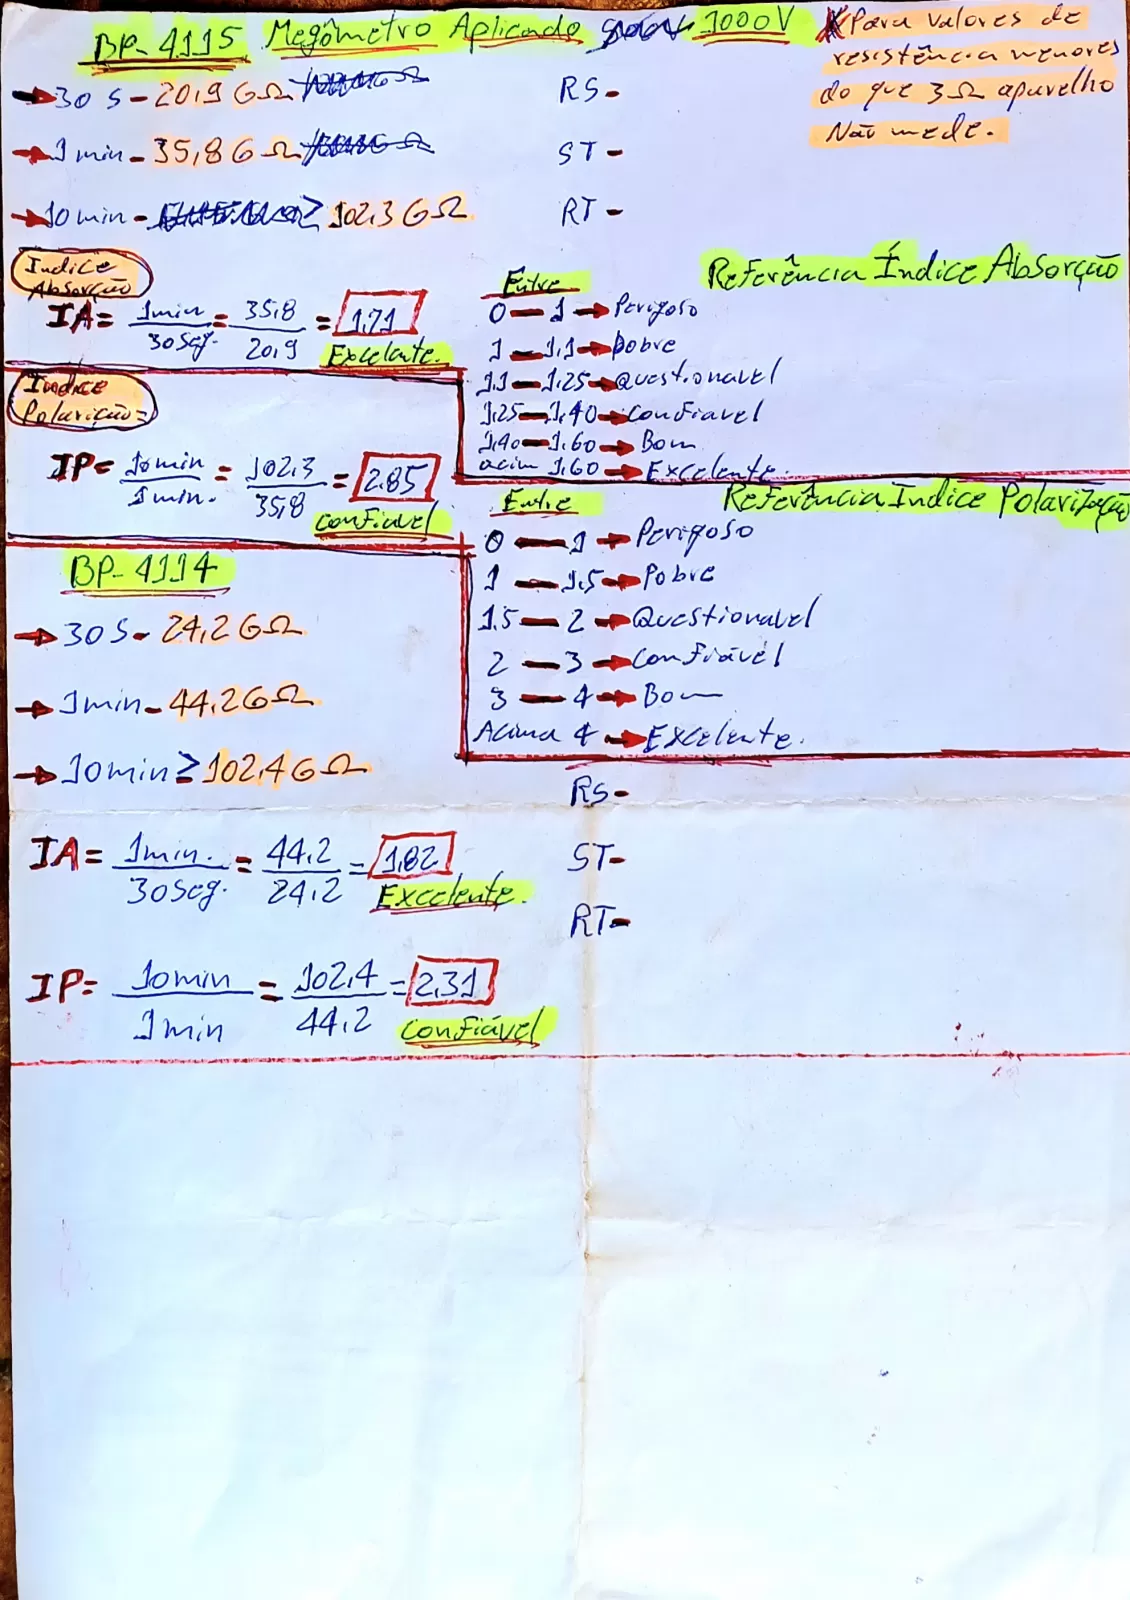 BP-4115 Megômetro Aplicado 1000V
Para valores de
resistência menores
do que 3 Ω aparelho
Não mede.
30 S - 20,9 GΩ
1 min - 35,8 GΩ
10 min - ≥ 102,3 GΩ
RS -
ST -
RT -
Indice
Absorção
IA = 1min / 30 Seg. = 35,8 / 20,9 = 1,71
Excelente.
Referência Índice Absorção
Entre
0 — 1 → Perigoso
1 — 1,1 → Pobre
1,1 — 1,25 → Questionavel
1,25 — 1,40 → Confiavel
1,40 — 1,60 → Bom
acim 1,60 → Excelente.
Indice
Polarição =
IP = 10min / 1min. = 102,3 / 35,8 = 2,85
Confiavel
Referência Indice Polarização
Entre
0 — 1 → Perigoso
1 — 1,5 → Pobre
1,5 — 2 → Questionavel
2 — 3 → Confiável
3 — 4 → Bom
Acima 4 → Excelente.
BP-4114
30 S - 24,2 GΩ
1min - 44,2 GΩ
10min ≥ 102,4 GΩ
RS -
ST -
RT -
IA = 1min. / 30 Seg. = 44,2 / 24,2 = 1,82
Excelente.
IP = 10min / 1min = 102,4 / 44,2 = 2,31
Confiável